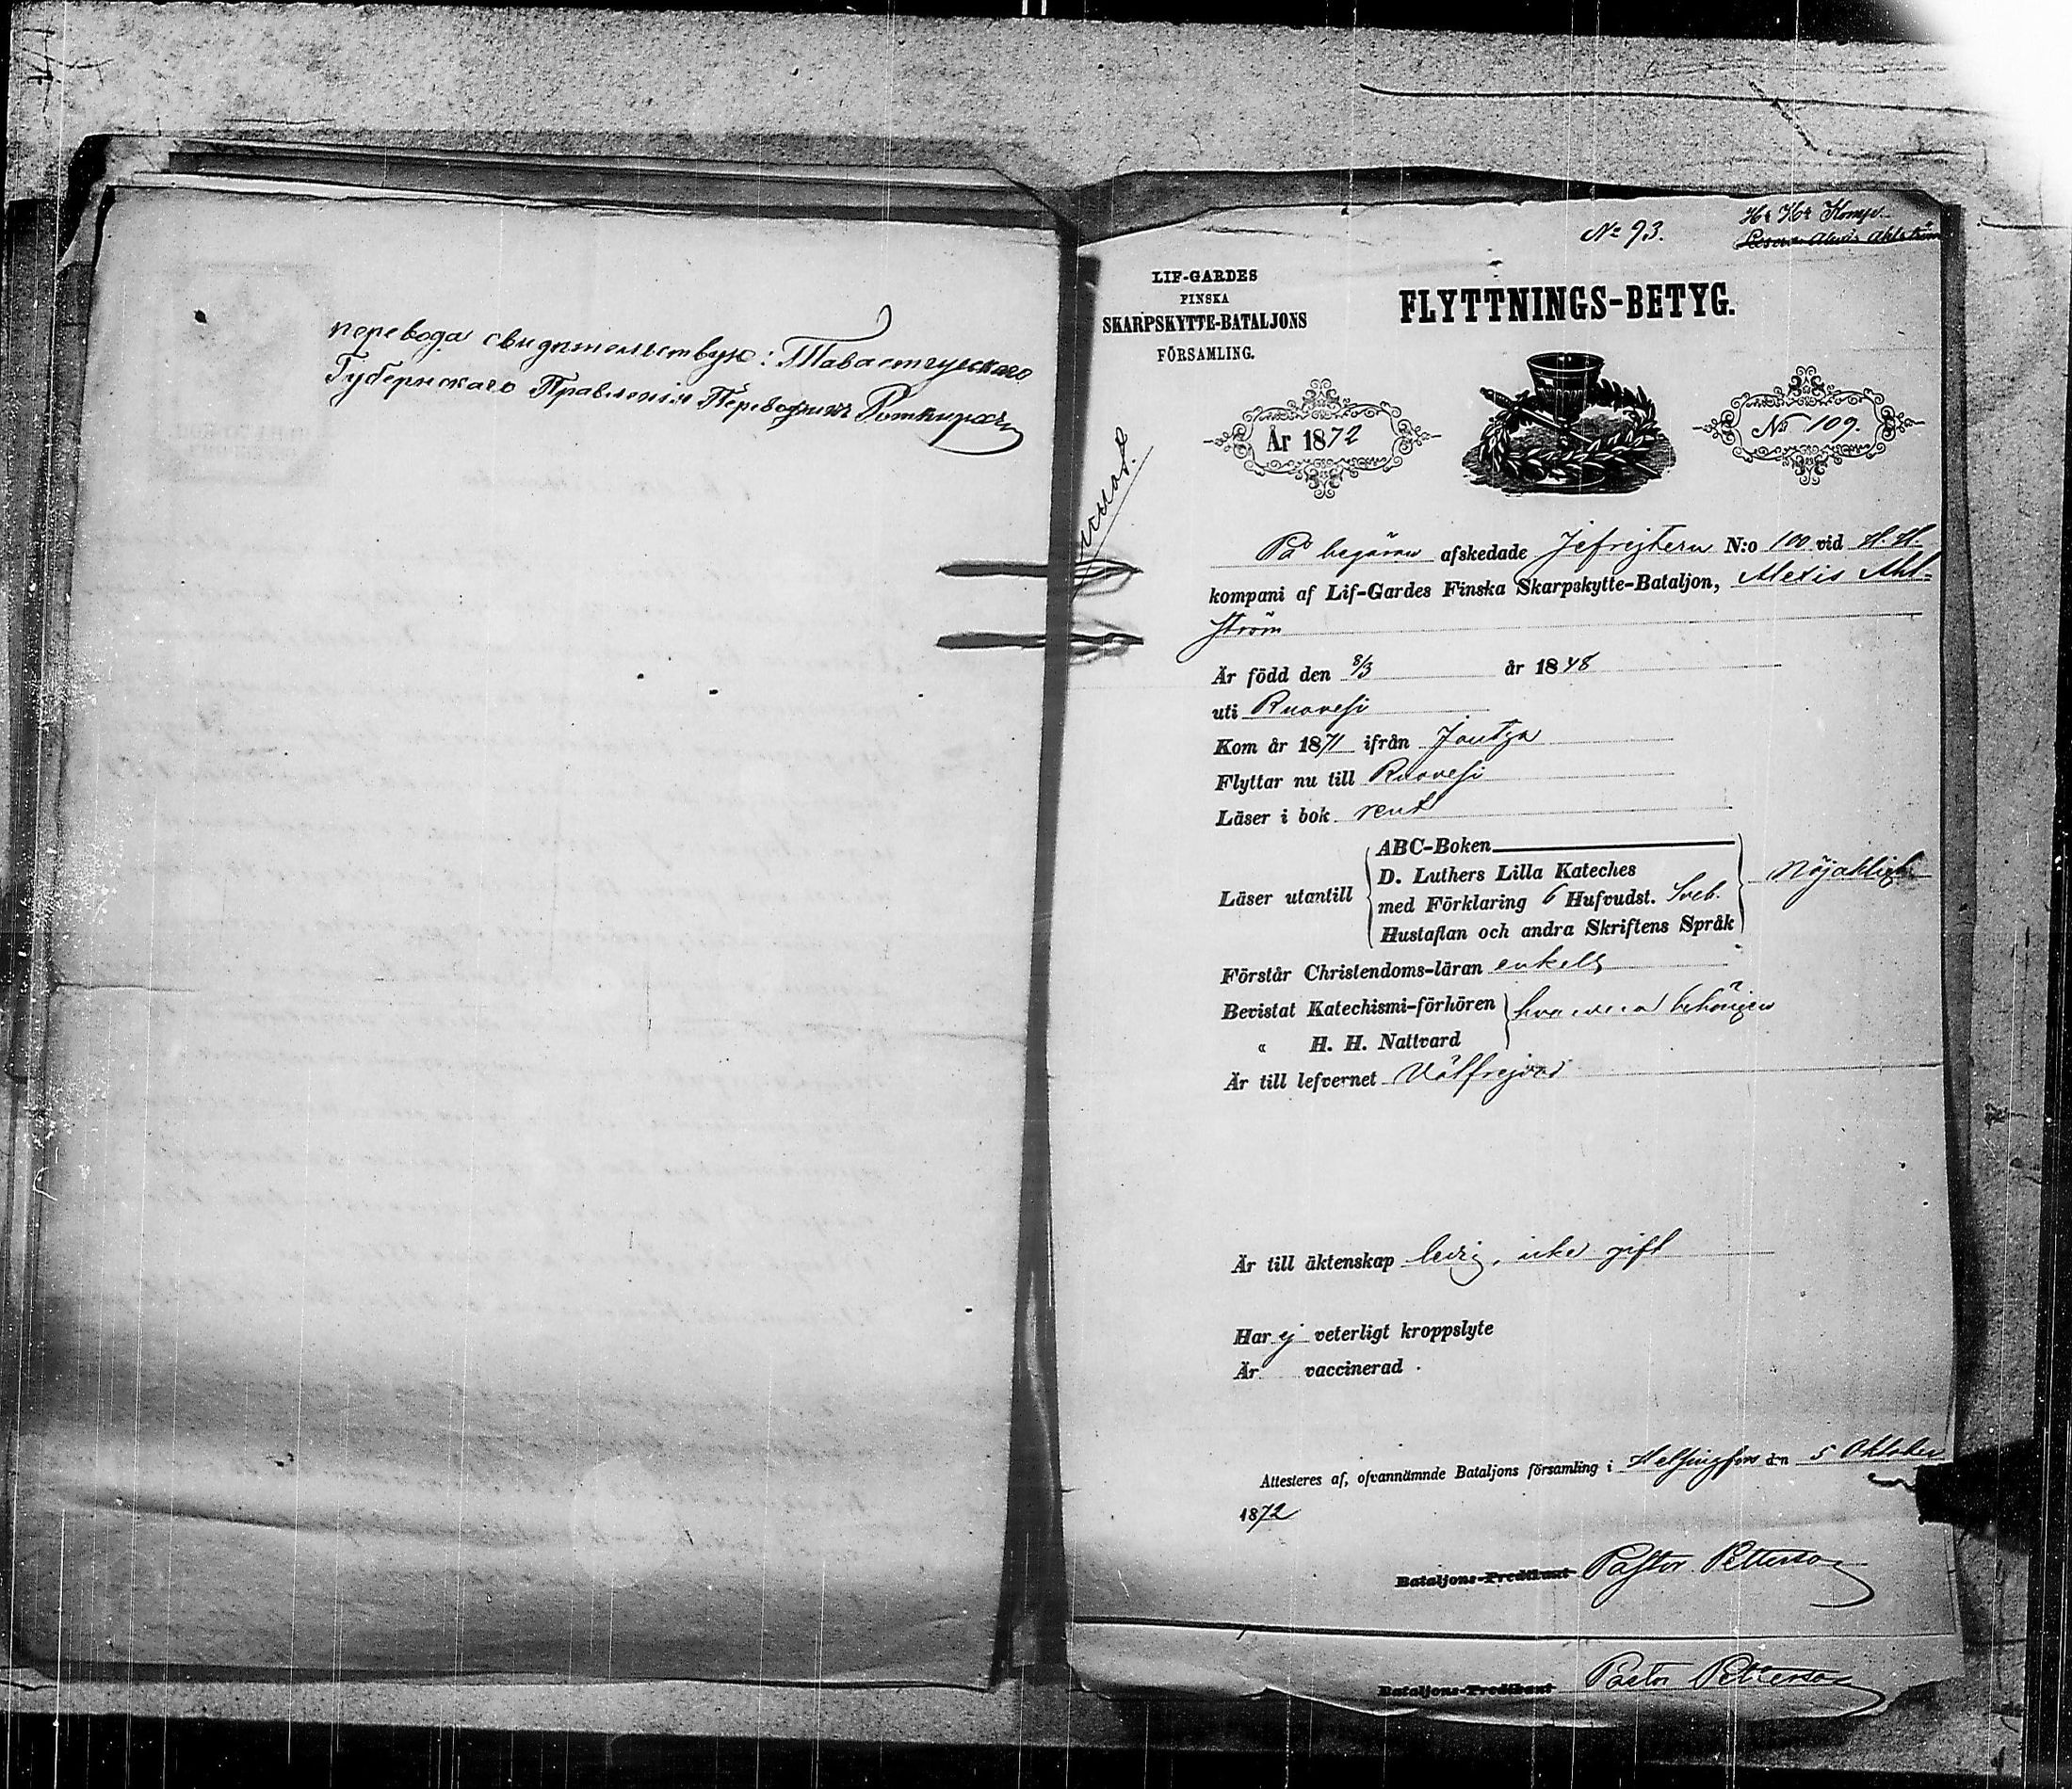 перевода свидѣтельствую: Тавастгускаго
Губернскаго Правленія Переводчикъ Роткирхъ
No 93.
Komp.
Alexis Ahlström
LIF-GARDES
FINSKA
SKARPSKYTTE-BATALJONS
FÖRSAMLING.
FLYTTNINGS-BETYG.
År 1872
No 109.
På begäran afskedade Jefrejtern N:o 100 vid H. H.
kompani af Lif-Gardes Finska Skarpskytte-Bataljon, Alexis Ahl-
ström
Är född den 8/3 år 1848
uti Ruovesi
Kom år 1871 ifrån Joutza
Flyttar nu till Ruovesi
Läser i bok rent
ABC-Boken
D. Luthers Lilla Kateches
Läser utantill
med Förklaring 6 Hufvudst. Sveb.
Hustaflan och andra Skriftens Språk
Nöjaktigt
Förstår Christendoms-läran enkelt
Bevistat Katechismi-förhören
behörigen
« H. H. Nattvard
Är till lefvernet Välfrejdad
Är till äktenskap ledig, icke gift
Har ej veterligt kroppslyte
Är vaccinerad
Attesteres af, ofvannämnde Bataljons församling i Helsingfors den 5 Oktober
1872
Bataljons-Predikant Pastor Petterson
Bataljons-Predikant Pastor Petterson